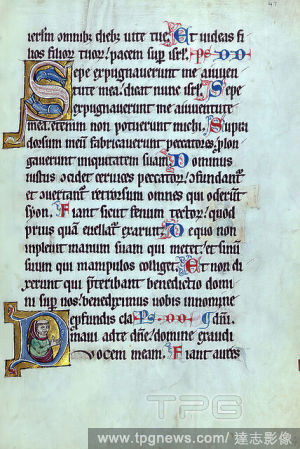 47
ierlm omnib; dieb; uite tue. Et uideas fi
lios filior tuor. pacem sup isrl.
Sepe expugnauerunt me a iuuen
tute mea. dicat nunc isrl. Sepe
expugnauerunt me a iuuentute
mea. etenim non potuerunt michi. Supra
dorsum meu fabricauerunt peccatores. plon
gauerunt iniquitatem suam. Dominus
iustus ocidet ceruices peccator. ofundant
et auertant retrorsum omnes qui oderut
syon. Fiant sicut fenum tector. quod
prius qua euellat exaruit. De quo non
impleuit manum suam qui metet. et sinu
suum qui manipulos colliget. Et non di
xerunt qui pteribant benedictio domi
ni sup uos. benediximus uobis in nomine
De pfundis cla dni.
maui ad te dne. domine exaudi
uocem meam. Fiant aures
TPG
www.tpgnews.com/達志影像